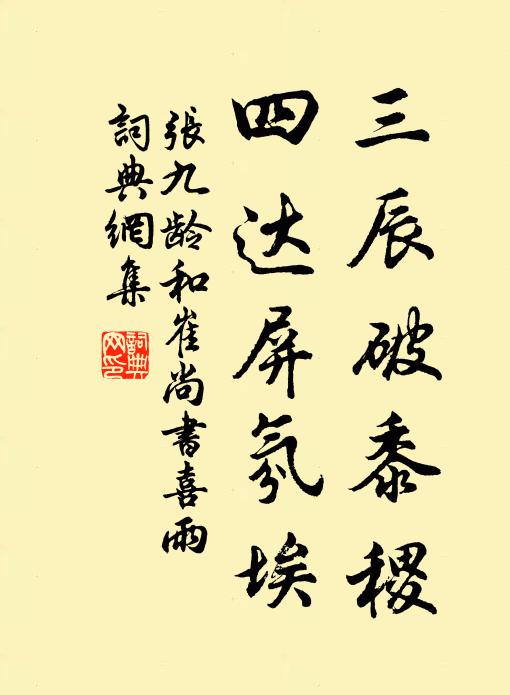 三辰破黍稷
四达屏氛埃
張九龄和崔尚書喜雨
詞典網集
詞典
网印